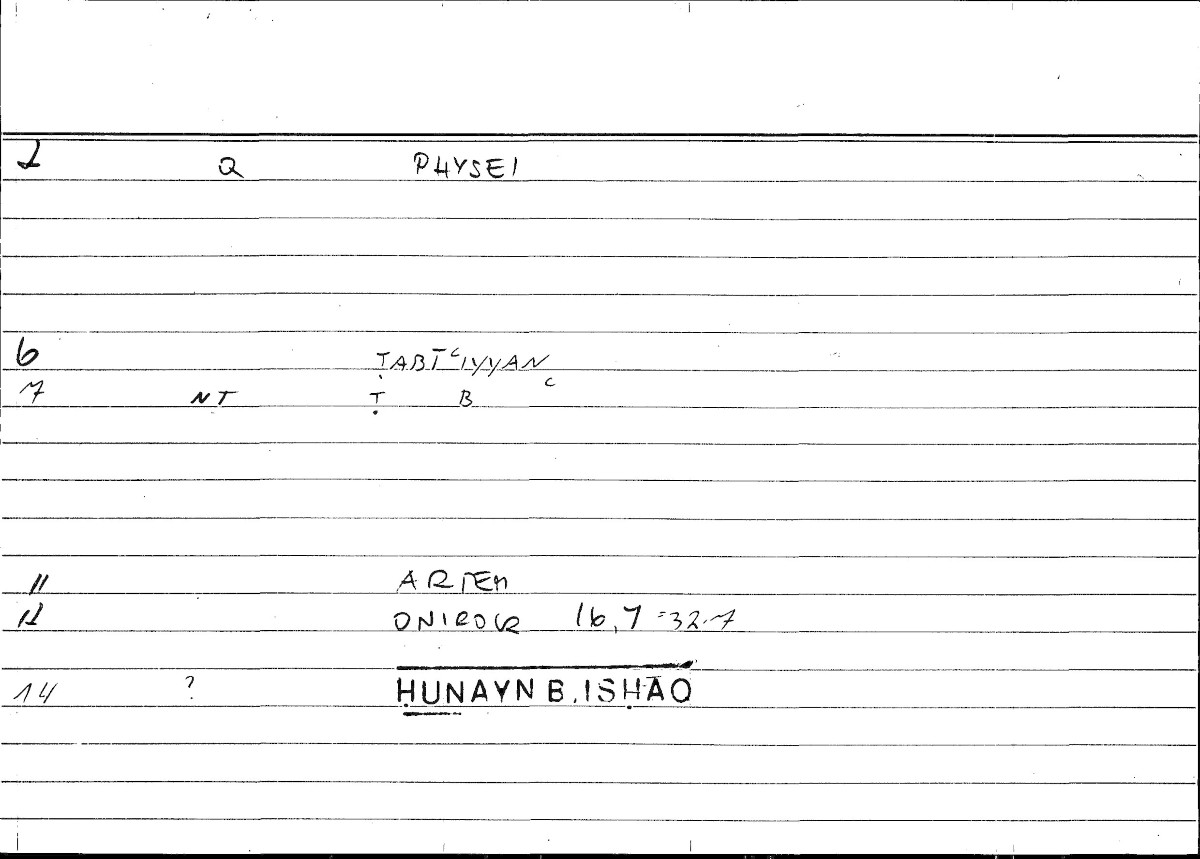 2 Q PHYSEI
6 ṬABĪʿIYYAN
7 NT Ṭ B ʿ
11 ARTEM
12 ONIROCR 16,7 =32.7
14 ? ḤUNAYN B. ISḤĀQ